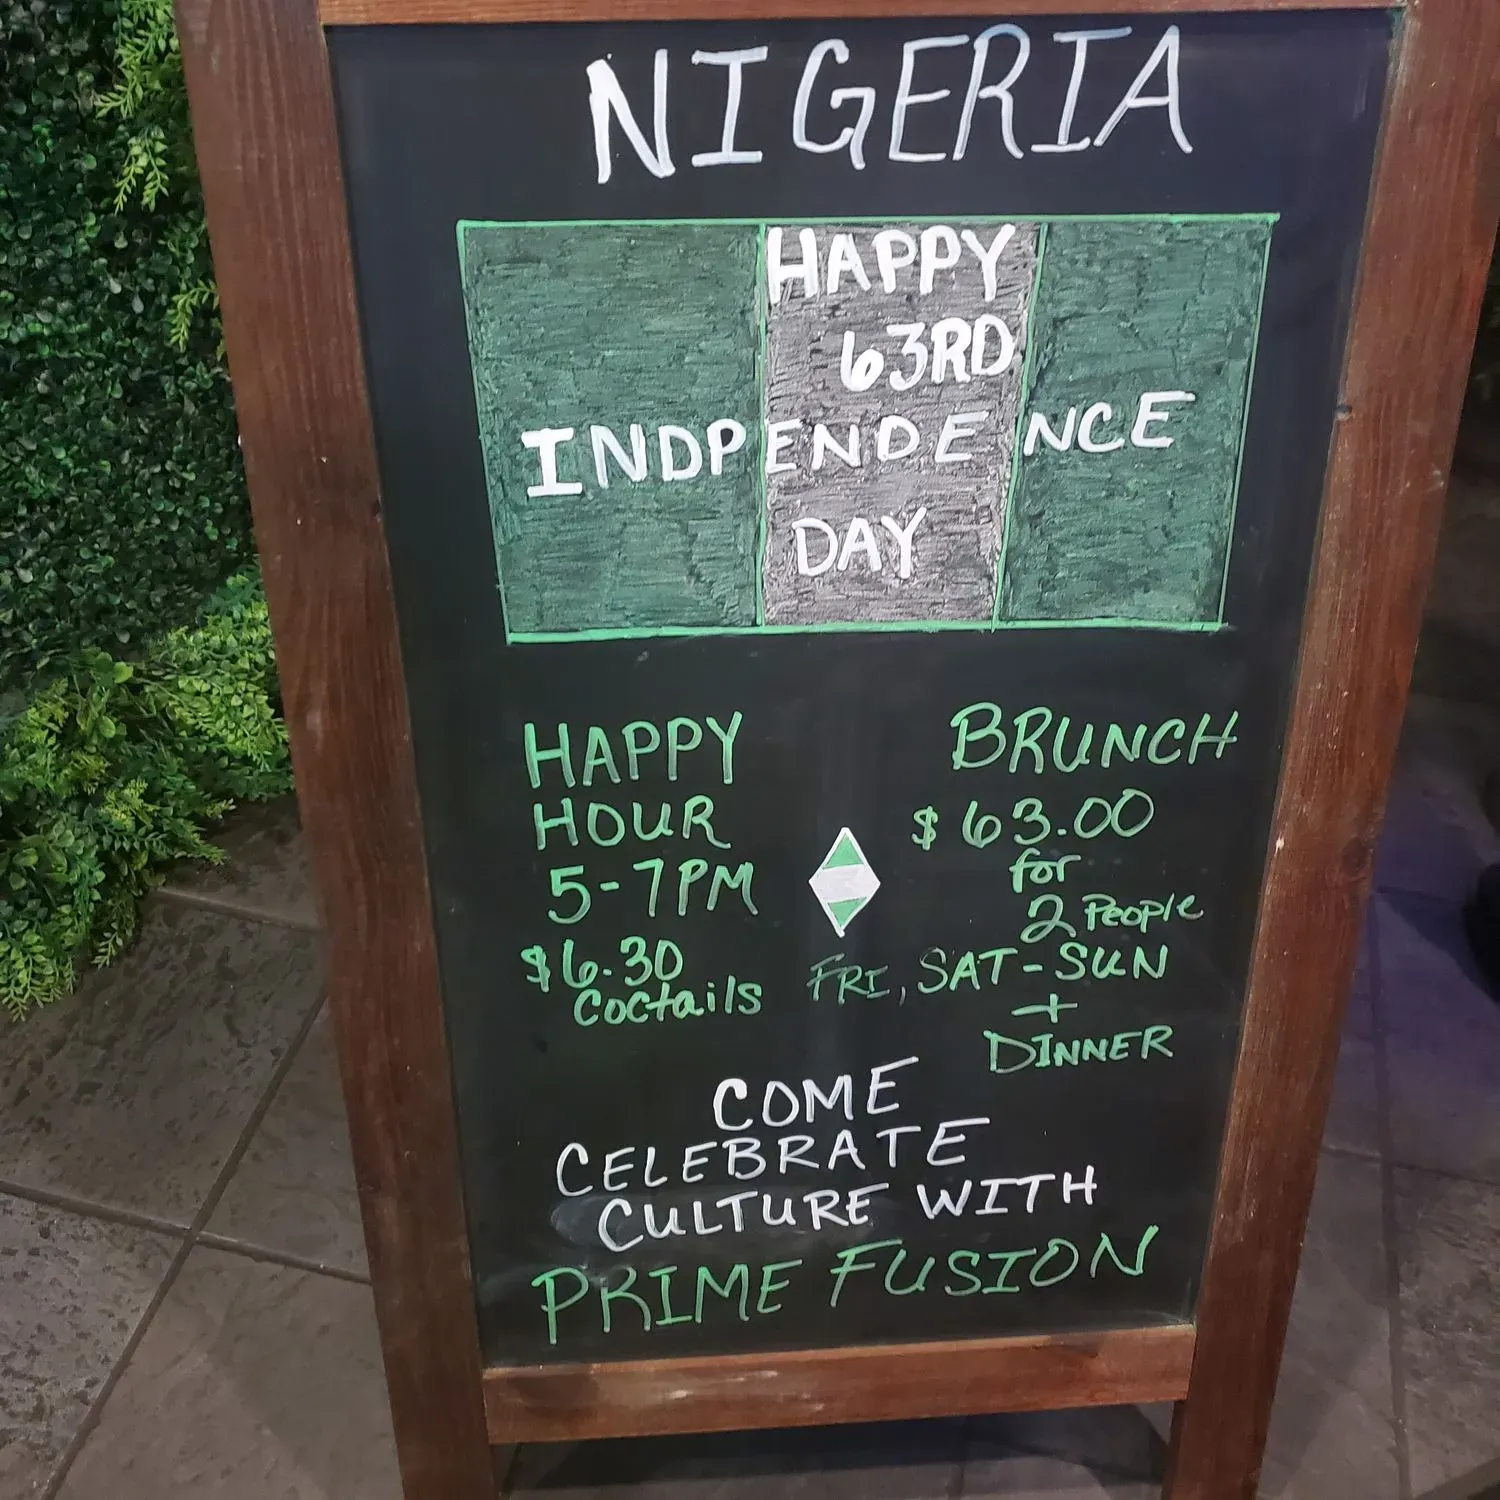 NIGERIA
HAPPY
63RD
INDPENDENCE
DAY
HAPPY
HOUR
5-7PM
$6.30
Coctails
BRUNCH
$63.00
for
2 People
FRI, SAT-SUN
+
DINNER
COME
CELEBRATE
CULTURE WITH
PRIME FUSION